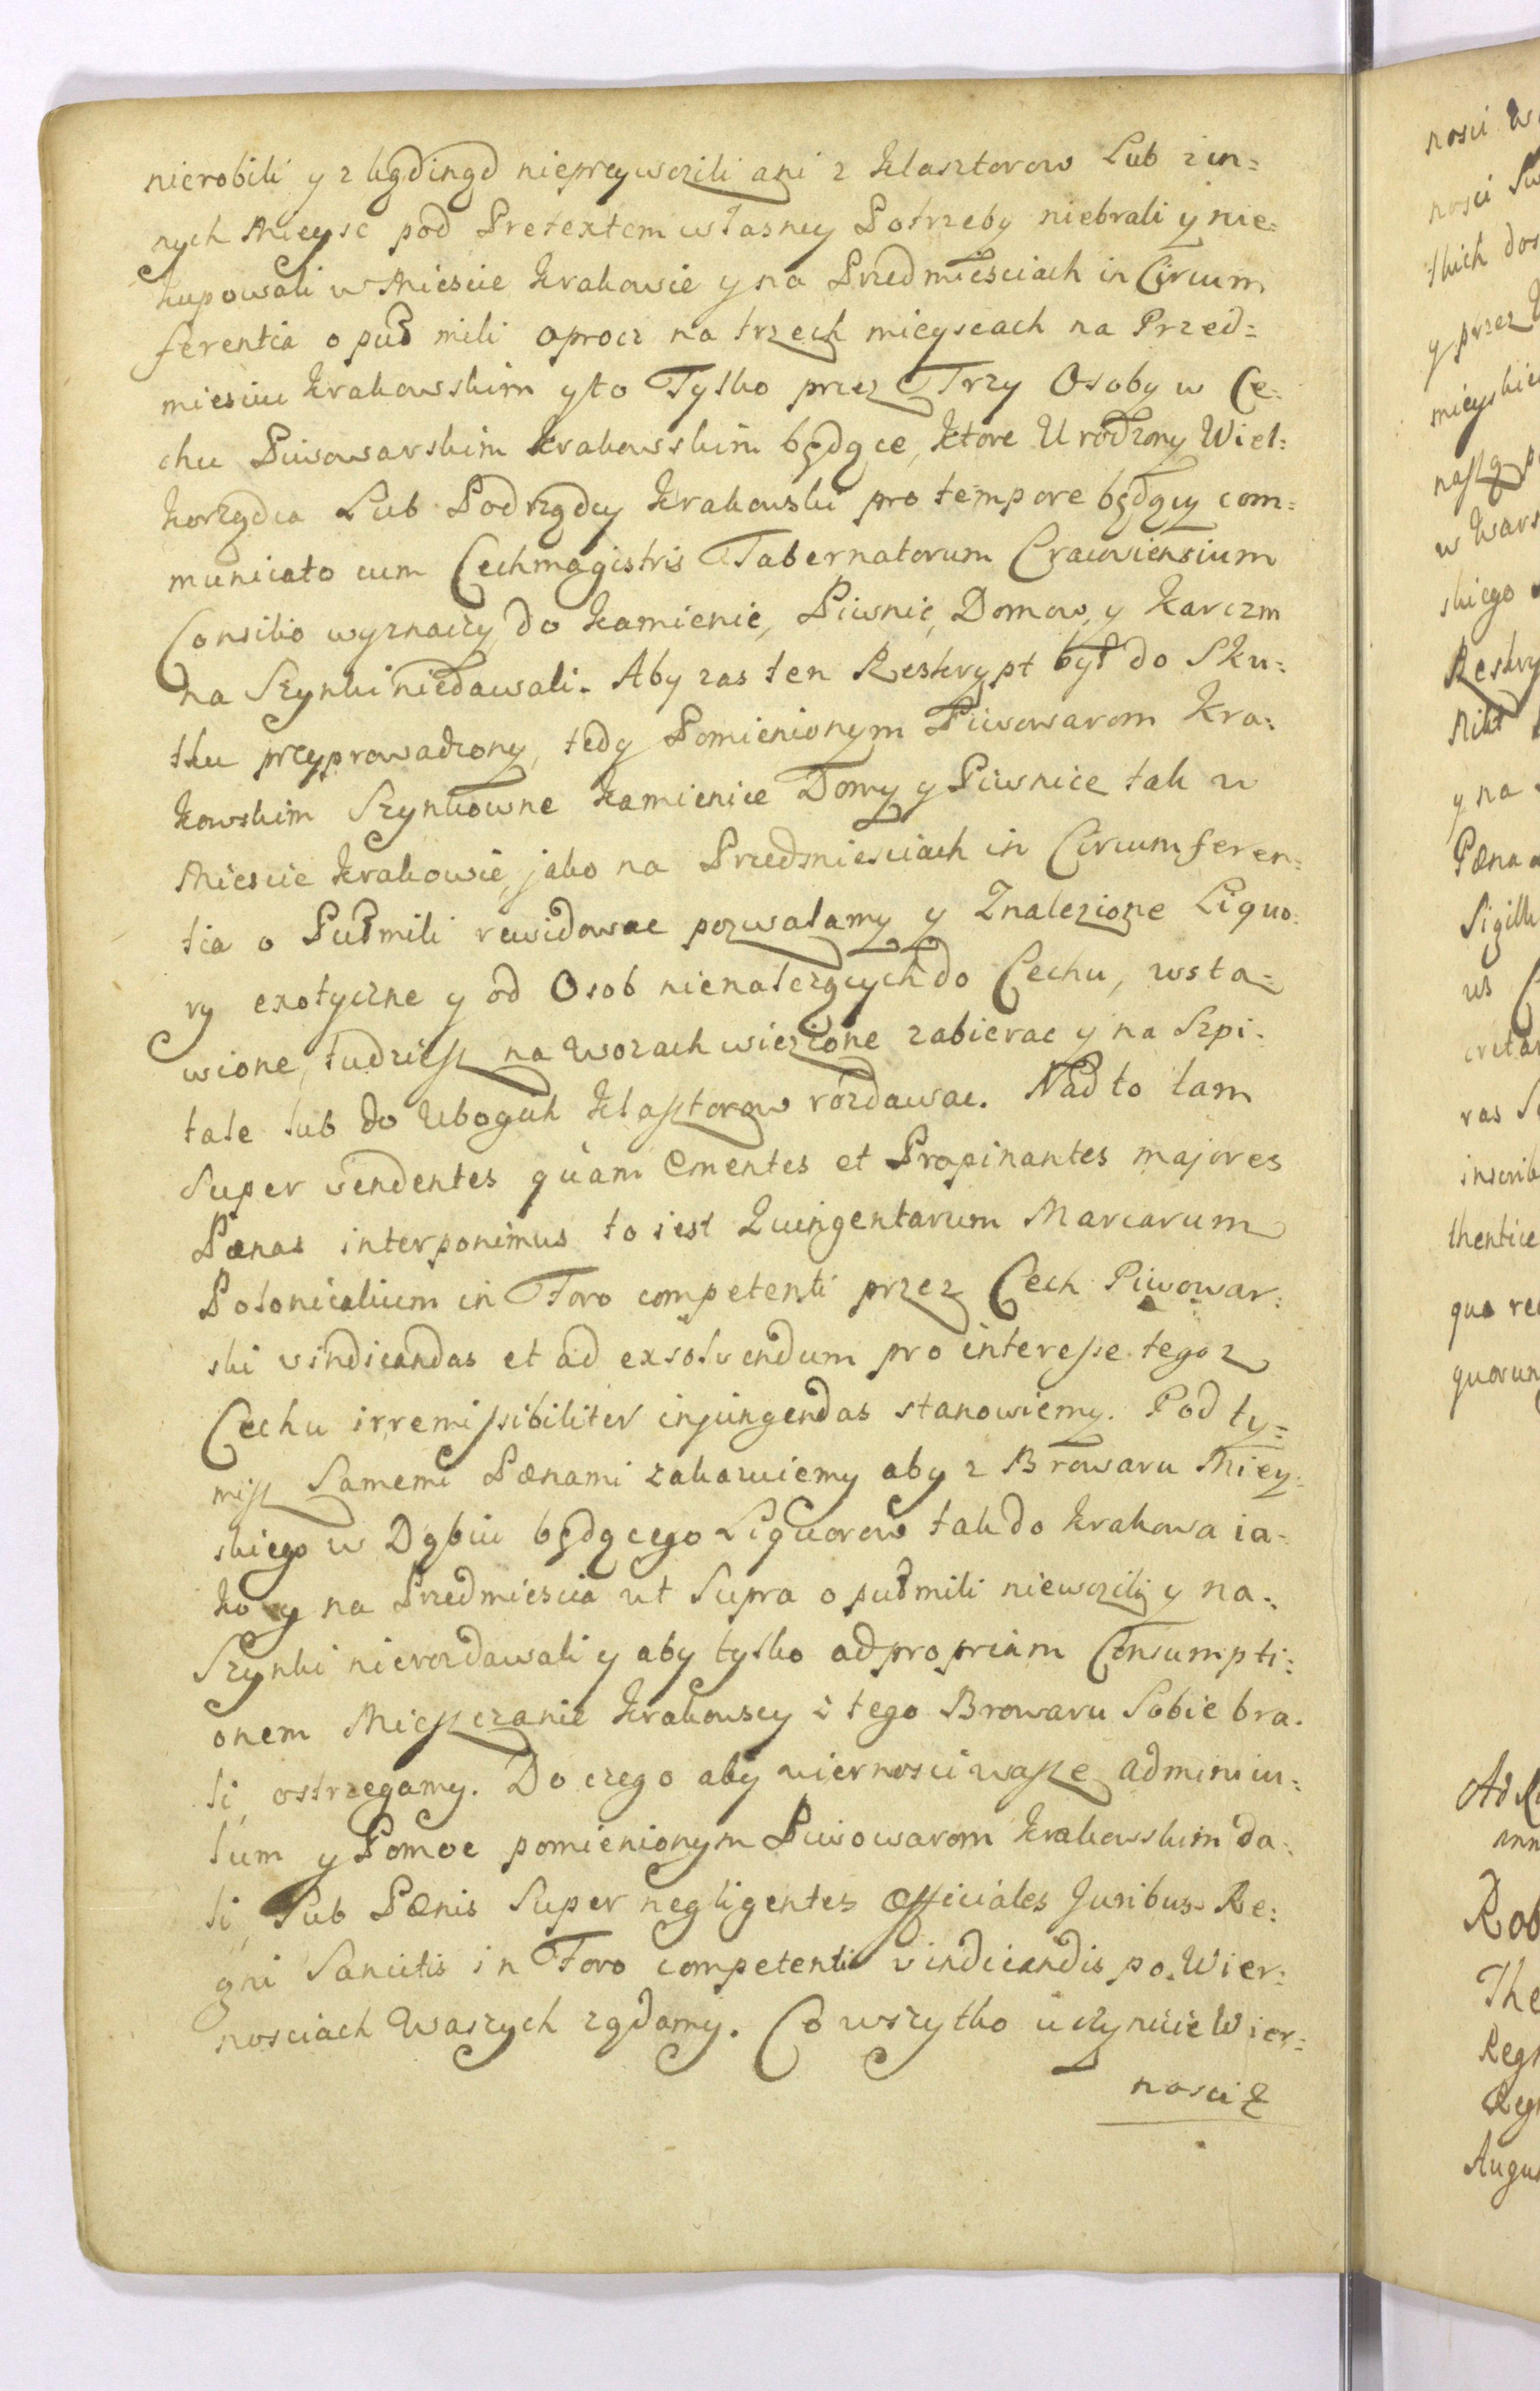 nierobili y z kądinąd nieprzywozili ani z Klasztorow Lub z in=
nych Mieysc pod Pretextem własney Potrzeby niebrali y nie=
kupowali w Miescie Krakowie y na Przedmiesciach in Circum
ferentia o puł mili oprocz na trzech mieyscach na Przed=
miesciu Krakowskim y to Tylko przez Trzy Osoby w Ce=
chu Piwowarskim Krakowskim będące, ktore Urodzony Wiel=
korządca Lub Podrządcy Krakowski pro tempore będący com=
municato cum Cechmagistris Tabernatorum Cracoviensium
Consilio wyznaczy, do Kamienic, Piwnic, Domow, y Karczm
na Szynki niedawali. Aby zas ten Reskrypt był do Sku=
tku przyprowadzony, tedy Pomienionym Piwowarom Kra=
kowskim Szynkowne Kamienice Domy y Piwnice tak w
Miescie Krakowie, jako na Przedmiesciach in Circumferen=
tia o Pułmili rewidowac pozwalamy y Znalezione Liquo=
ry exotyczne y od Osob nienalezących do Cechu, wsta=
wione, tudziesz na Wozach wiezione zabierac y na Szpi=
tale lub do Ubogich Klasztorow rozdawac. Nad to tam
Super vendentes quam Ementes et Propinantes majores
Pænas interponimus to iest Quingentarum Marcarum
Polonicalium in Foro competenti przez Cech Piwowar=
ski vindicandas et ad exsolvendum pro interesse tegoz
Cechu irremissibiliter injungendas stanowiemy. Pod ty=
misz Samemi Pænami zakazuiemy aby z Browaru Miey=
skiego w Dąbiu będącego Liquorow tak do Krakowa ia=
ko y na Przedmiescia ut Supra o pułmili niewozili y na=
Szynki nierozdawali y aby tylko ad propriam Consumpti=
onem Mieszczanie Krakowscy z tego Browaru Sobie bra=
li, ostrzegamy. Do czego aby wiernosci wasze adminicu=
lum y Pomoc pomienionym Piwowarom Krakowskim da=
li, Sub Pænis Super negligentes Officiales Juribus Re=
gni Sancitis in Foro competenti vindicandis po Wier=
nosciach Waszych ządamy. Co wszytko uczynicie Wier=
nosci Z
nosci
nosci
tkich
y przez
w
skiego
y na
Pæna
ras
thentice
qua
Rob
The
Augus